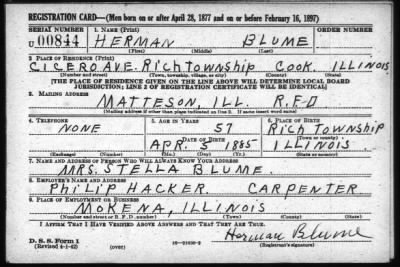 REGISTRATION CARD—(Men born on or after April 28, 1877 and on or before February 16, 1897)
SERIAL NUMBER 1. NAME (Print) ORDER NUMBER
U 00844 HERMAN BLUME
(First) (Middle) (Last)
2. PLACE OF RESIDENCE (Print)
CICERO AVE. Rich township Cook. ILLINOIS
(Number and street) (Town, township, village, or city) (County) (State)
[THE PLACE OF RESIDENCE GIVEN ON THE LINE ABOVE WILL DETERMINE LOCAL BOARD
JURISDICTION; LINE 2 OF REGISTRATION CERTIFICATE WILL BE IDENTICAL]
3. MAILING ADDRESS
MATTESON, ILL. R.F.D
[Mailing address if other than place indicated on line 2. If same insert word same]
4. TELEPHONE 5. AGE IN YEARS 6. PLACE OF BIRTH
NONE 57 Rich Township
DATE OF BIRTH (Town or county)
APR. 5 1885 ILLINOIS.
(Exchange) (Number) (Mo.) (Day) (Yr.) (State or country)
7. NAME AND ADDRESS OF PERSON WHO WILL ALWAYS KNOW YOUR ADDRESS
MRS. STELLA BLUME.
8. EMPLOYER'S NAME AND ADDRESS
PHILIP HACKER. CARPENTER
9. PLACE OF EMPLOYMENT OR BUSINESS
MOKENA, ILLINOIS
(Number and street or R. F. D. number) (Town) (County) (State)
I AFFIRM THAT I HAVE VERIFIED ABOVE ANSWERS AND THAT THEY ARE TRUE.
Herman Blume
D. S. S. Form 1 (Registrant's signature)
(Revised 4-1-42) (over)